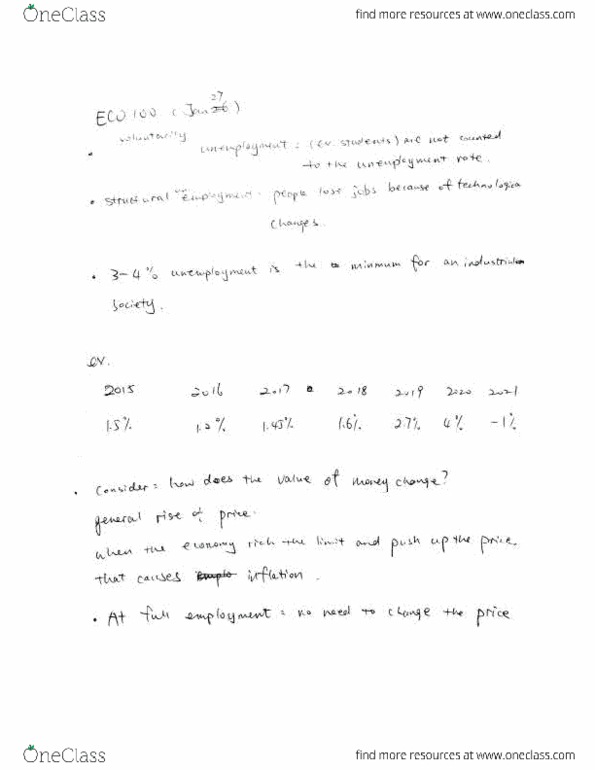 OneClass
find more resources at www.oneclass.com
27
ECO 100 ( Jan 26 )
voluntarily
unemployment : (ex. students) are not counted
to the unemployment rate.
structural "employment : people lose jobs because of technologica
changes.
3-4% unemployment is the minmum for an industrial
society.
ex.
2015 2016 2017 2018 2019 2020 2021
1.5% 1.2% 1.45% 1.6% 2.7% 4% -1%
Consider : how does the value of money change?
general rise of price.
when the economy rich the limit and push up the price,
that causes inflation.
At full employment : no need to change the price
OneClass
find more resources at www.oneclass.com